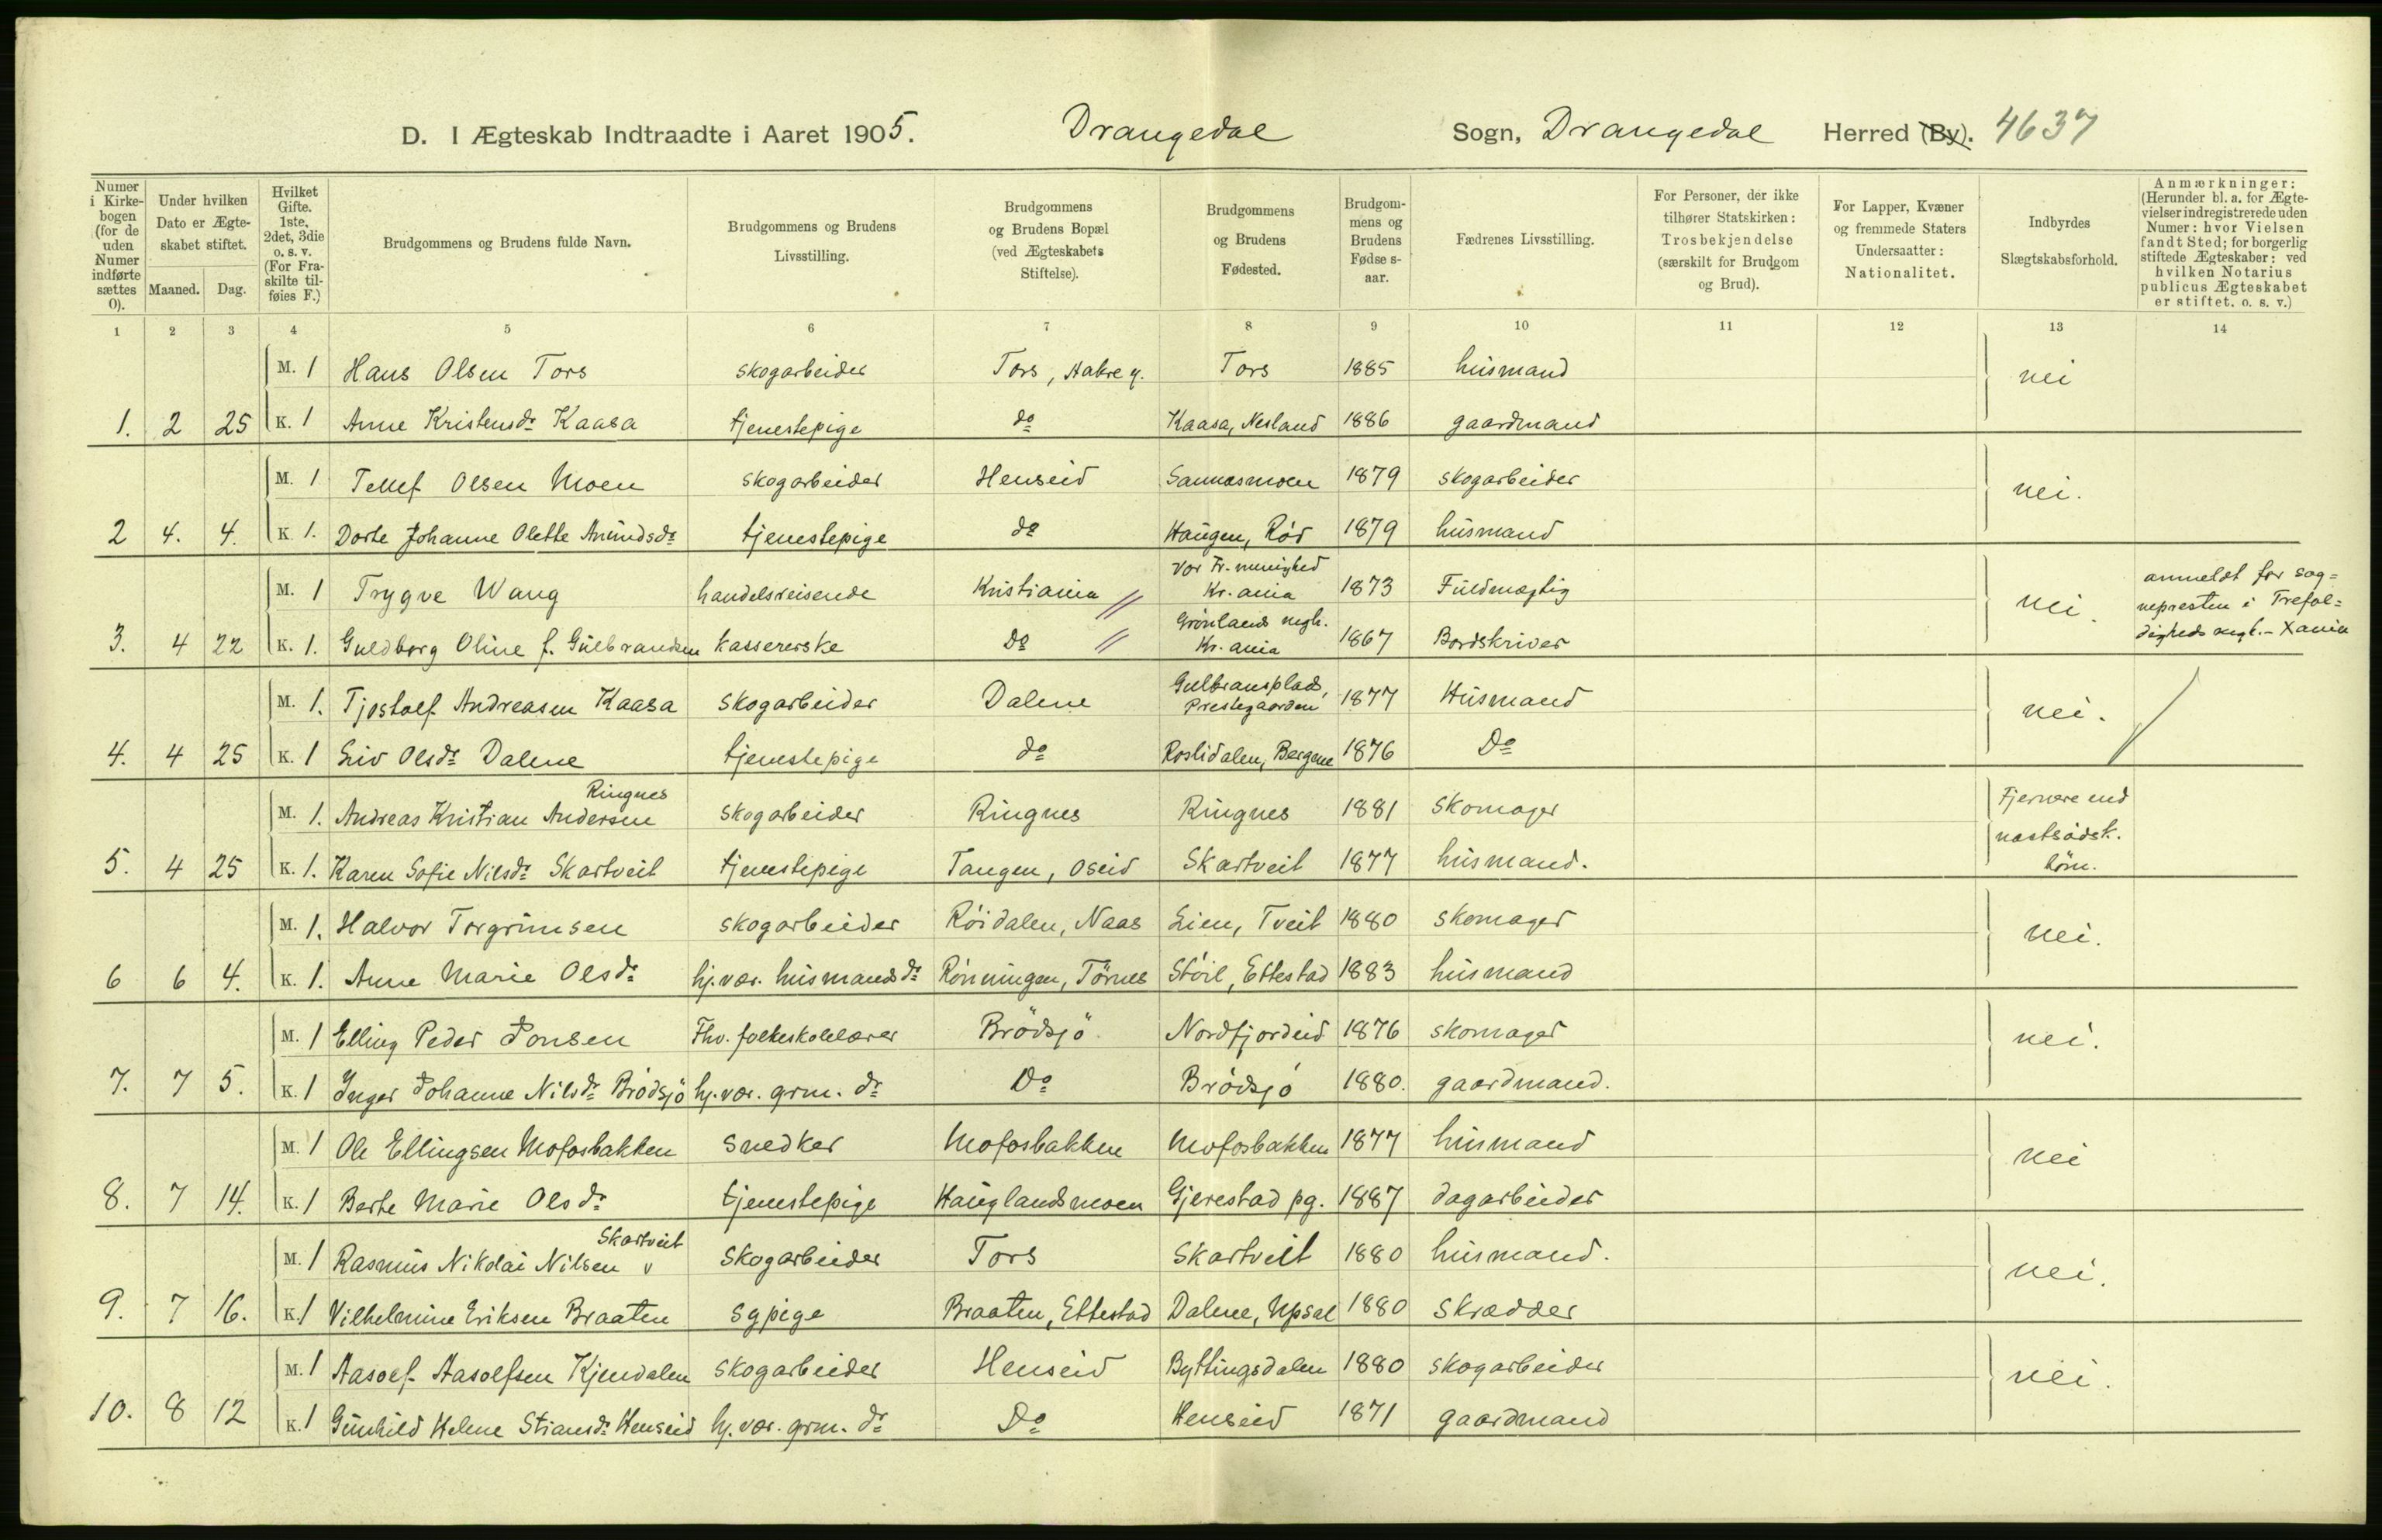 D. I Ægteskab Indtraadte i Aaret 1905. Drangedal Sogn, Drangedal Herred (By). 4637
Numer i Kirkebogen (for de uden Numer indførte sættes 0). | Under hvilken Dato er Ægteskabet stiftet. Maaned. Dag. | Hvilket Gifte. 1ste, 2det, 3die o. s. v. (For Fraskilte tilføies F.) | Brudgommens og Brudens fulde Navn. | Brudgommens og Brudens Livsstilling. | Brudgommens og Brudens Bopæl (ved Ægteskabets Stiftelse). | Brudgommens og Brudens Fødested. | Brudgommens og Brudens Fødses-aar. | Fædrenes Livsstilling. | For Personer, der ikke tilhører Statskirken: Trosbekjendelse (særskilt for Brudgom og Brud). | For Lapper, Kvæner og fremmede Staters Undersaatter: Nationalitet. | Indbyrdes Slægtskabsforhold. | Anmærkninger: (Herunder bl. a. for Ægtevielser indregistrerede uden Numer: hvor Vielsen fandt Sted; for borgerlig stiftede Ægteskaber: ved hvilken Notarius publicus Ægteskabet er stiftet. o. s. v.)
1 2 3 4 5 6 7 8 9 10 11 12 13 14
M. 1 Hans Olsen Tors skogarbeider Tors, Aabre g. Tors 1885 husmand nei
1. 2 25 K. 1 Anne Kristensdr Kaasa tjenestepige do Kaasa, Nesland 1886 gaardmand
M. 1 Tellef Olsen Moen skogarbeider Henseid Sannasmoen 1879 skogarbeider nei.
2 4. 4. K. 1. Dorte Johanne Olette Amundsdr tjenestepige do Haugen, Rör 1879 husmand
M. 1 Trygve Wang handelsreisende Kristiania Vor Fr. menighed Kr.ania 1873 Fuldmægtig nei. anmeldt for sog=
nepresten i Trefol=
3. 4 22 K. 1. Guldborg Oline f. Gulbrandsen kassererske Do Grönlands mgh. Kr.ania 1867 Bordskriver digheds mgh. - Xania
M. 1. Tjostolf Andreasen Kaasa skogarbeider Dalene Gulbransplads, Prestegaarden 1877 Husmand nei.
4. 4 25 K. 1 Liv Olsdr Dalene tjenestepige do Roslidalen, Bergene 1876 Do
Ringnes
M. 1. Andreas Kristian Andersen skogarbeider Ringnes Ringnes 1881 skomager Fjernere end
næstsödsk.
5. 4 25 K. 1. Karen Sofie Nilsdr Skartveit tjenestepige Tangen, Oseid Skartveit 1877 husmand. börn.
M. 1. Halvor Torgrimsen skogarbeider Röidalen, Naas Lien, Tveit 1880 skomager nei.
6 6 4. K. 1. Anne Marie Olsdr hj.vær. husmandsdr Rönningen, Törnes Stöil, Ettestad 1883 husmand
M. 1 Elling Peder Jonsen Fhv. folkeskolelærer Brödsjö Nordfjordeid 1876 skomager nei.
7. 7 5. K. 1 Inger Johanne Nilsdr Brödsjö hj.vær. grm. dr Do Brödsjö 1880. gaardmand.
M. 1 Ole Ellingsen Mofosbakken snedker Mofosbakken Mofosbakken 1877 husmand nei
8. 7 14. K. 1 Berte Marie Olsdr tjenestepige Hauglandsmoen Gjerestad pg. 1887 dagarbeider
Skartveit
M. 1 Rasmus Nikolai Nilsen v skogarbeider Tors Skartveit 1880 husmand. nei.
9. 7 16. K. 1 Vilhelmine Eriksen Braaten sypige Braaten, Ettestad Dalene, Upsal 1880 skrædder
M. 1 Aasolf Aasolfsen Kjendalen skogarbeider Henseid Byttingsdalen 1880 skogarbeider nei.
10. 8 12 K. 1 Gunhild Helene Stiansdr Henseid hj.vær. grm. dr Do Henseid 1871 gaardmand